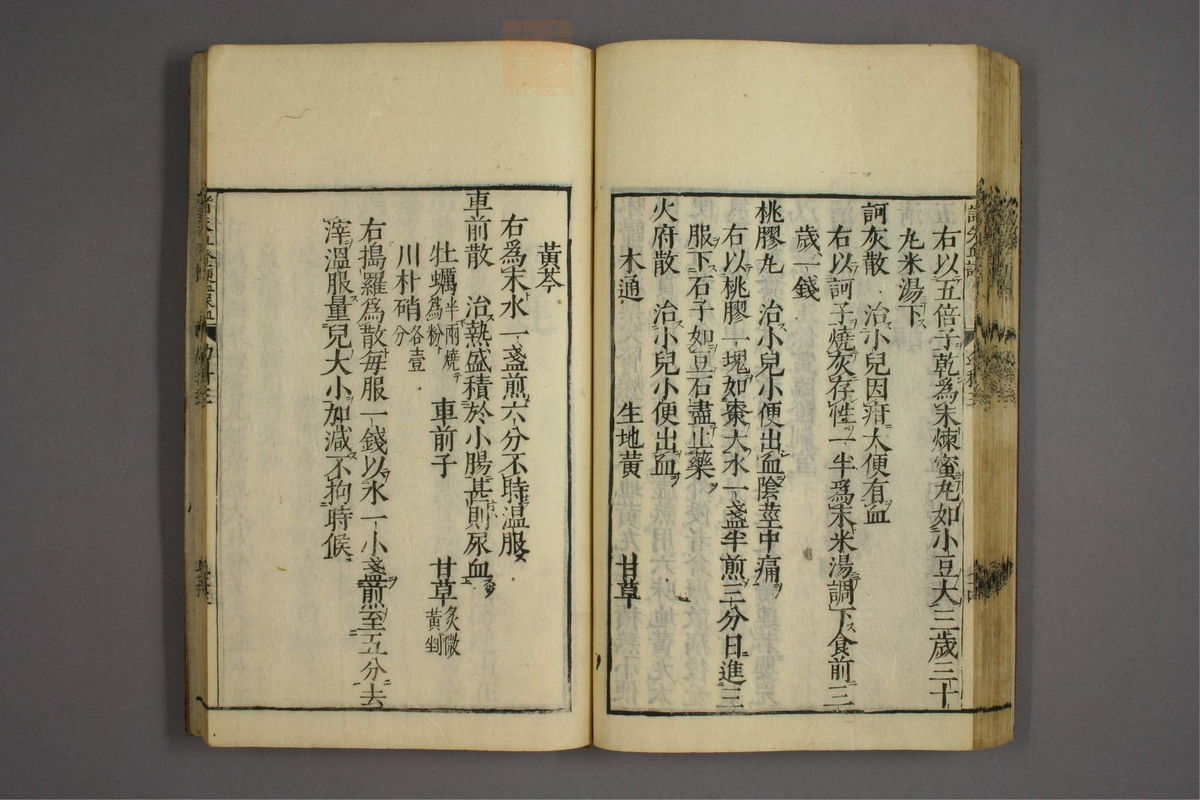 右以五倍子乾為末煉蜜丸如小豆大三歲三十
丸米湯下
訶灰散　治小兒因疳大便有血
右以訶子燒灰存性一半爲末米湯調下食前三
歲一錢
桃膠丸　治小兒小便出血陰莖中痛
右以桃膠一塊如棗大水一盞半煎三分日進三
服下石子如豆石盡止藥
火府散　治小兒小便出血
木通　生地黃　甘草
黃芩
右爲末水一盞煎六分不時溫服
車前散　治熱盛積於小腸甚則尿血
牡蠣半兩燒為粉　車前子　甘草炙微黃剉
川朴硝各壹分
右搗羅爲散每服一錢以水一小盞煎至五分去
滓溫服量兒大小加減不拘時候